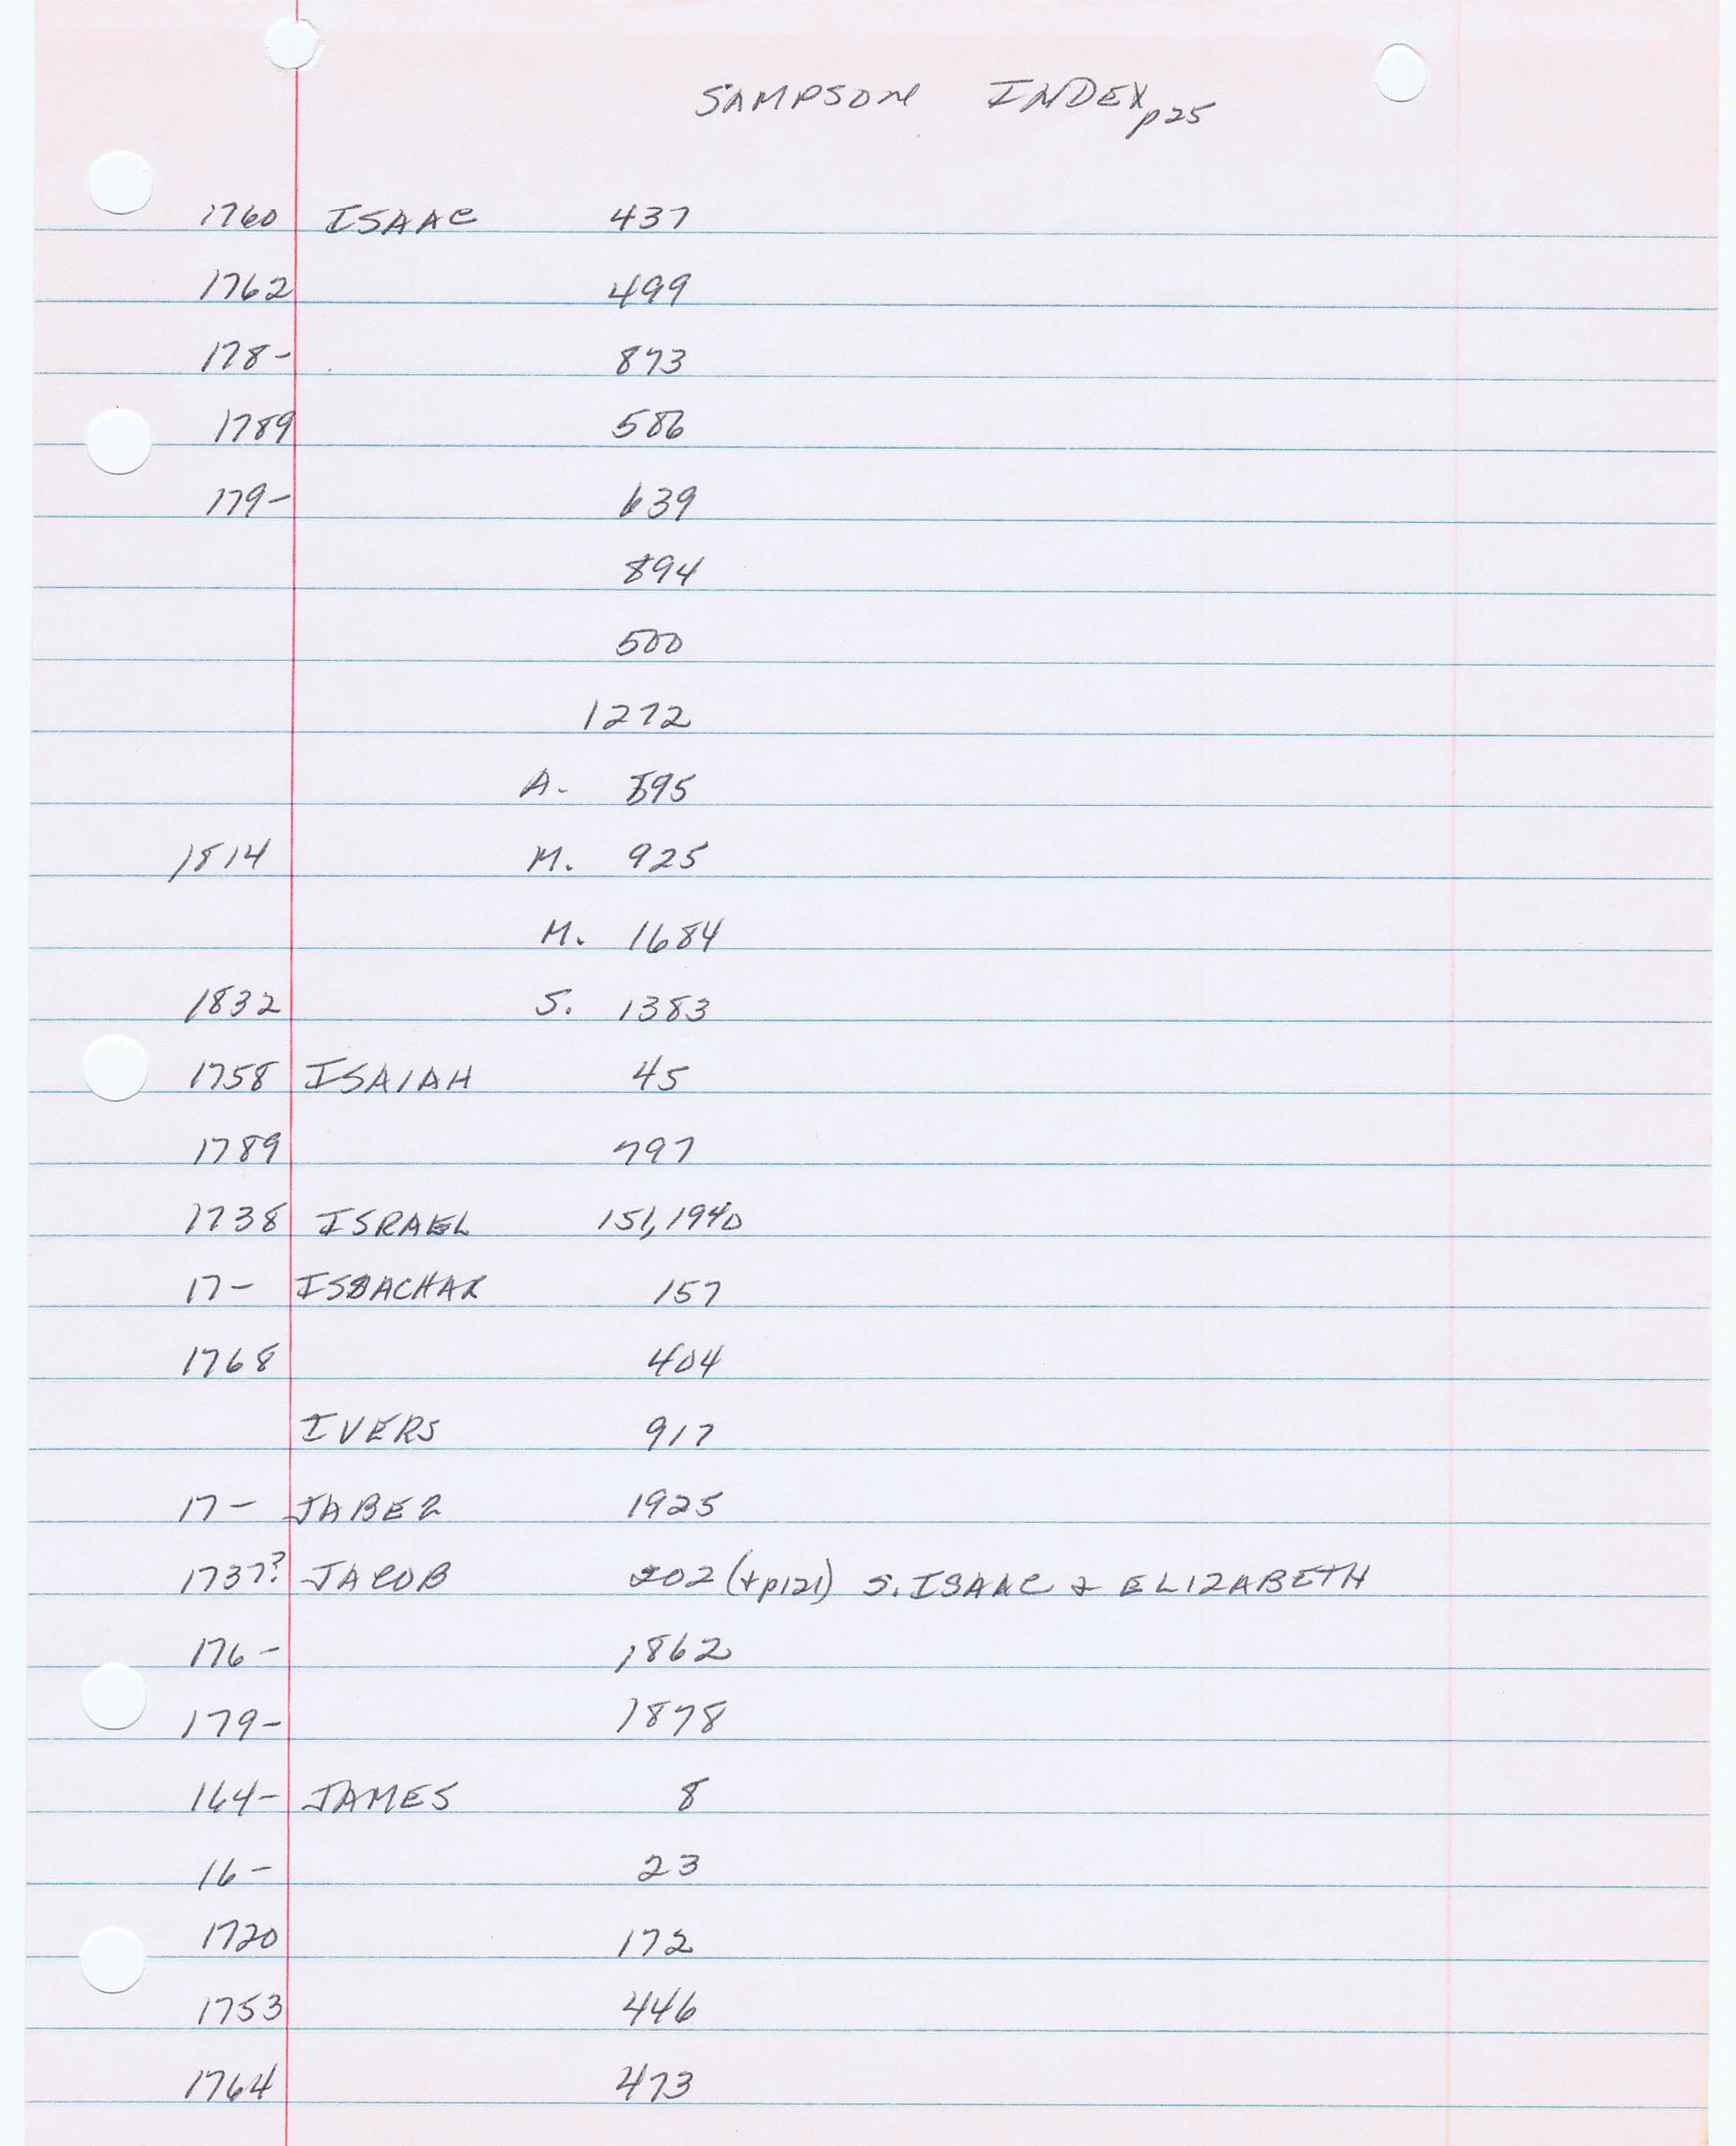 SAMPSON INDEX p25
1760 ISAAC 437
1762 499
178- 873
1789 586
179- 639
894
500
1272
A. 895
1814 M. 925
M. 1684
1832 S. 1383
1758 ISAIAH 45
1789 797
1738 ISRAEL 151, 1940
17- ISSACHAR 157
1768 404
IVERS 917
17- JABEZ 1925
1737? JACOB 202 (+p121) S. ISAAC & ELIZABETH
176- 1862
179- 1878
164- JAMES 8
16- 23
1720 172
1753 446
1764 473